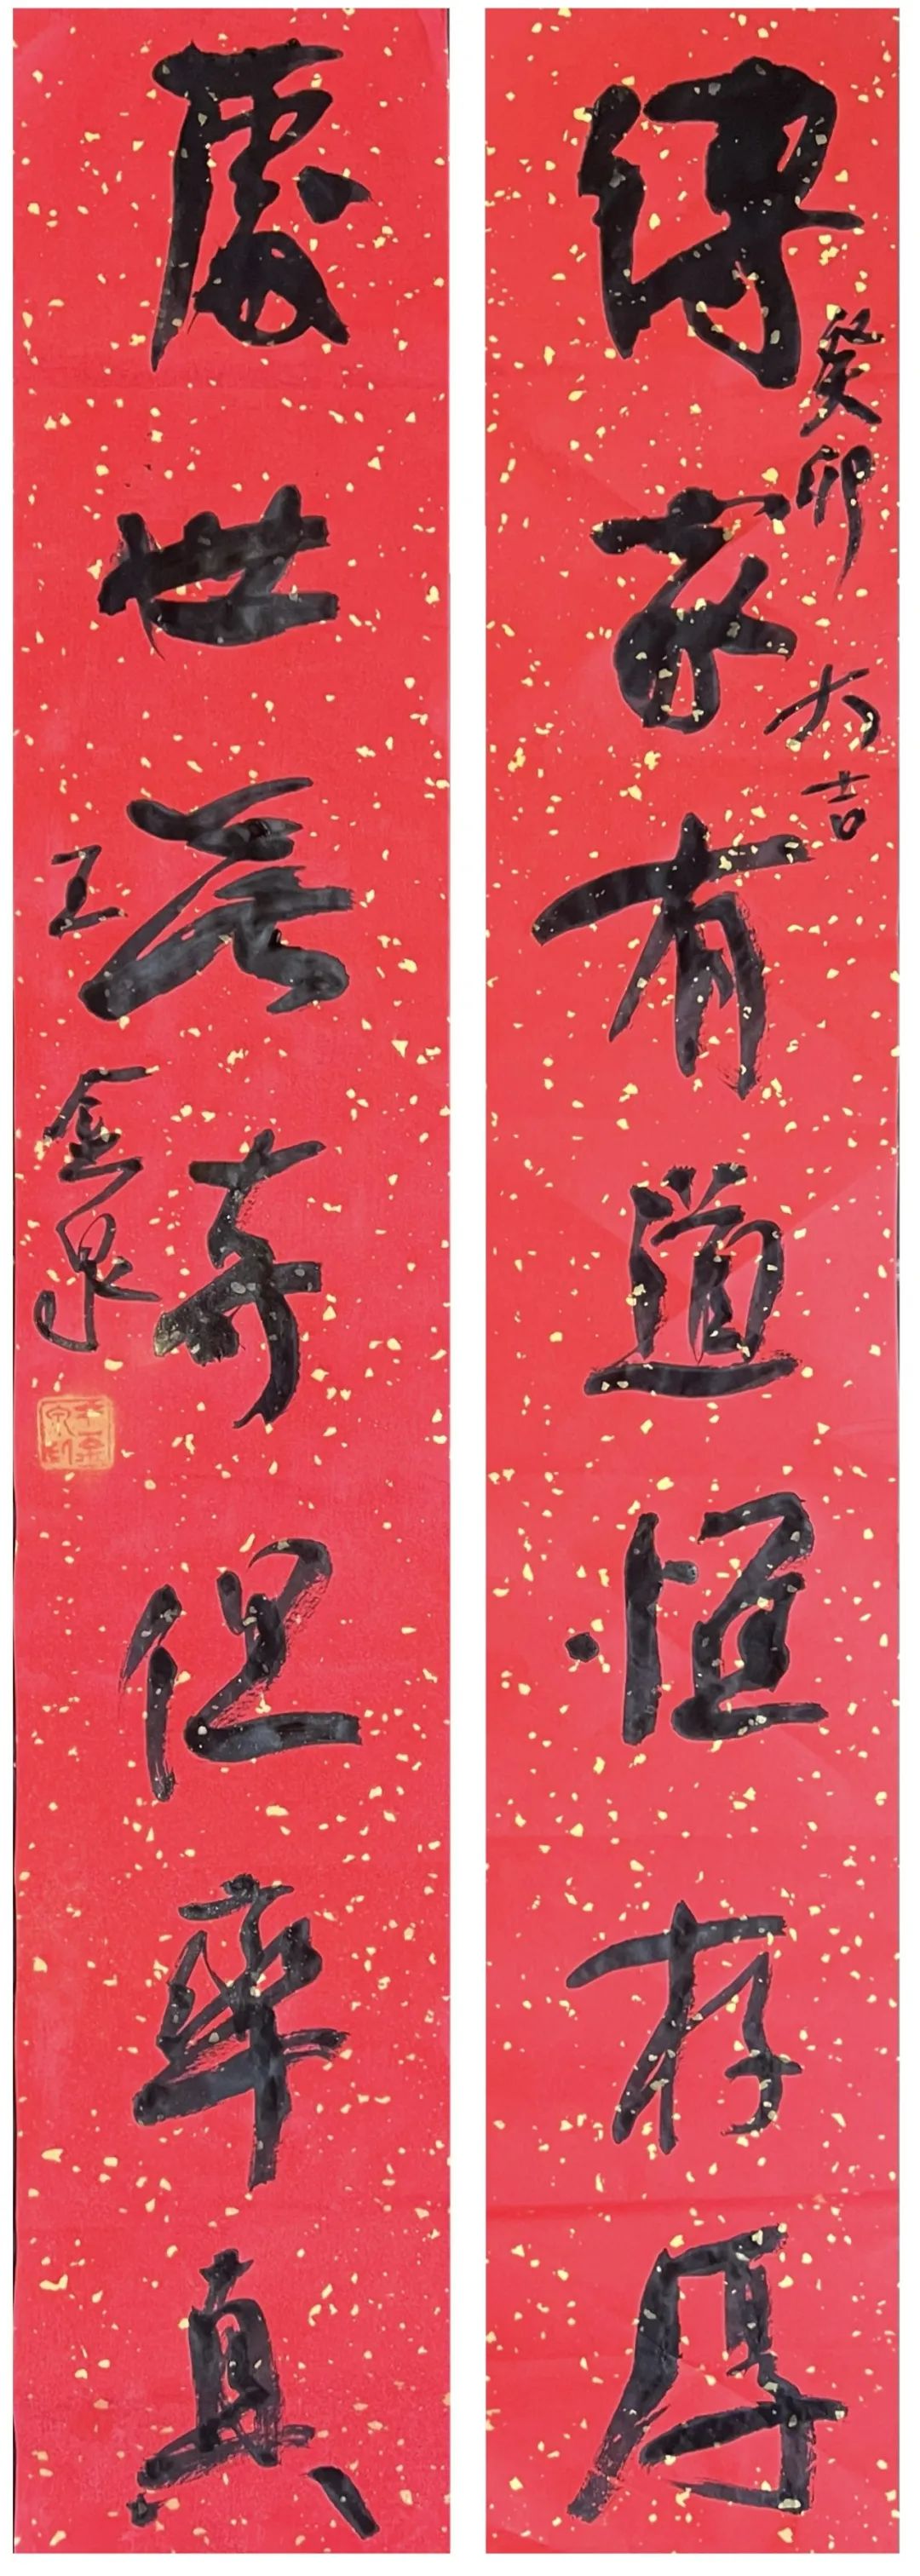 傳家有道恒存厚
癸卯大吉
處世無奇但率真
王金泉
王金泉印